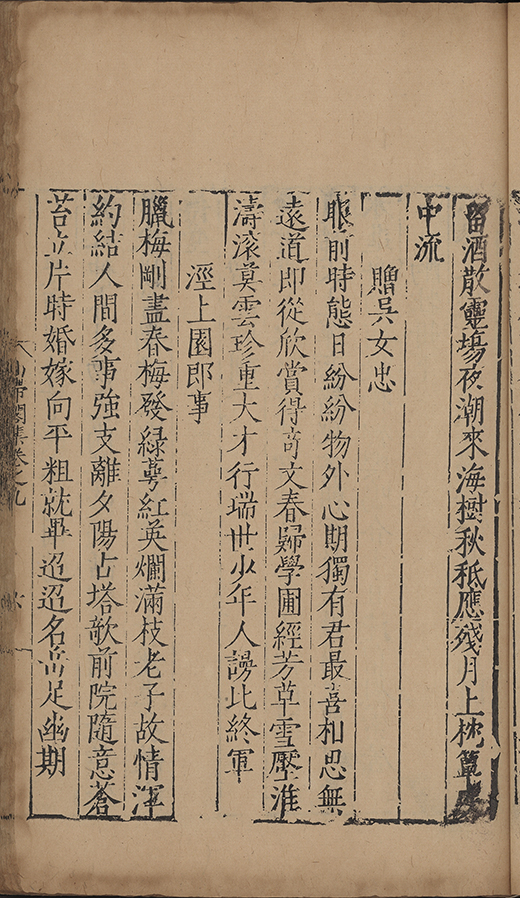 留酒散靈場夜潮來海樹秋秪應殘月上枕簟
中流
贈吳女忠
眼前時態日紛紛物外心期獨有君最喜相思無
遠道即從欣賞得奇文春歸學圃經芳草雪壓淮
濤滾莫雲珍重大才行瑞世少年人謗比終軍
涇上園即事
臘梅剛盡春梅發綠萼紅英爛滿枝老子故情渾
約結人間多事強支離夕陽占塔欹前院隨意蒼
苔立片時婚嫁向平粗就畢迢迢名足幽期
山帶閣集卷之九
六